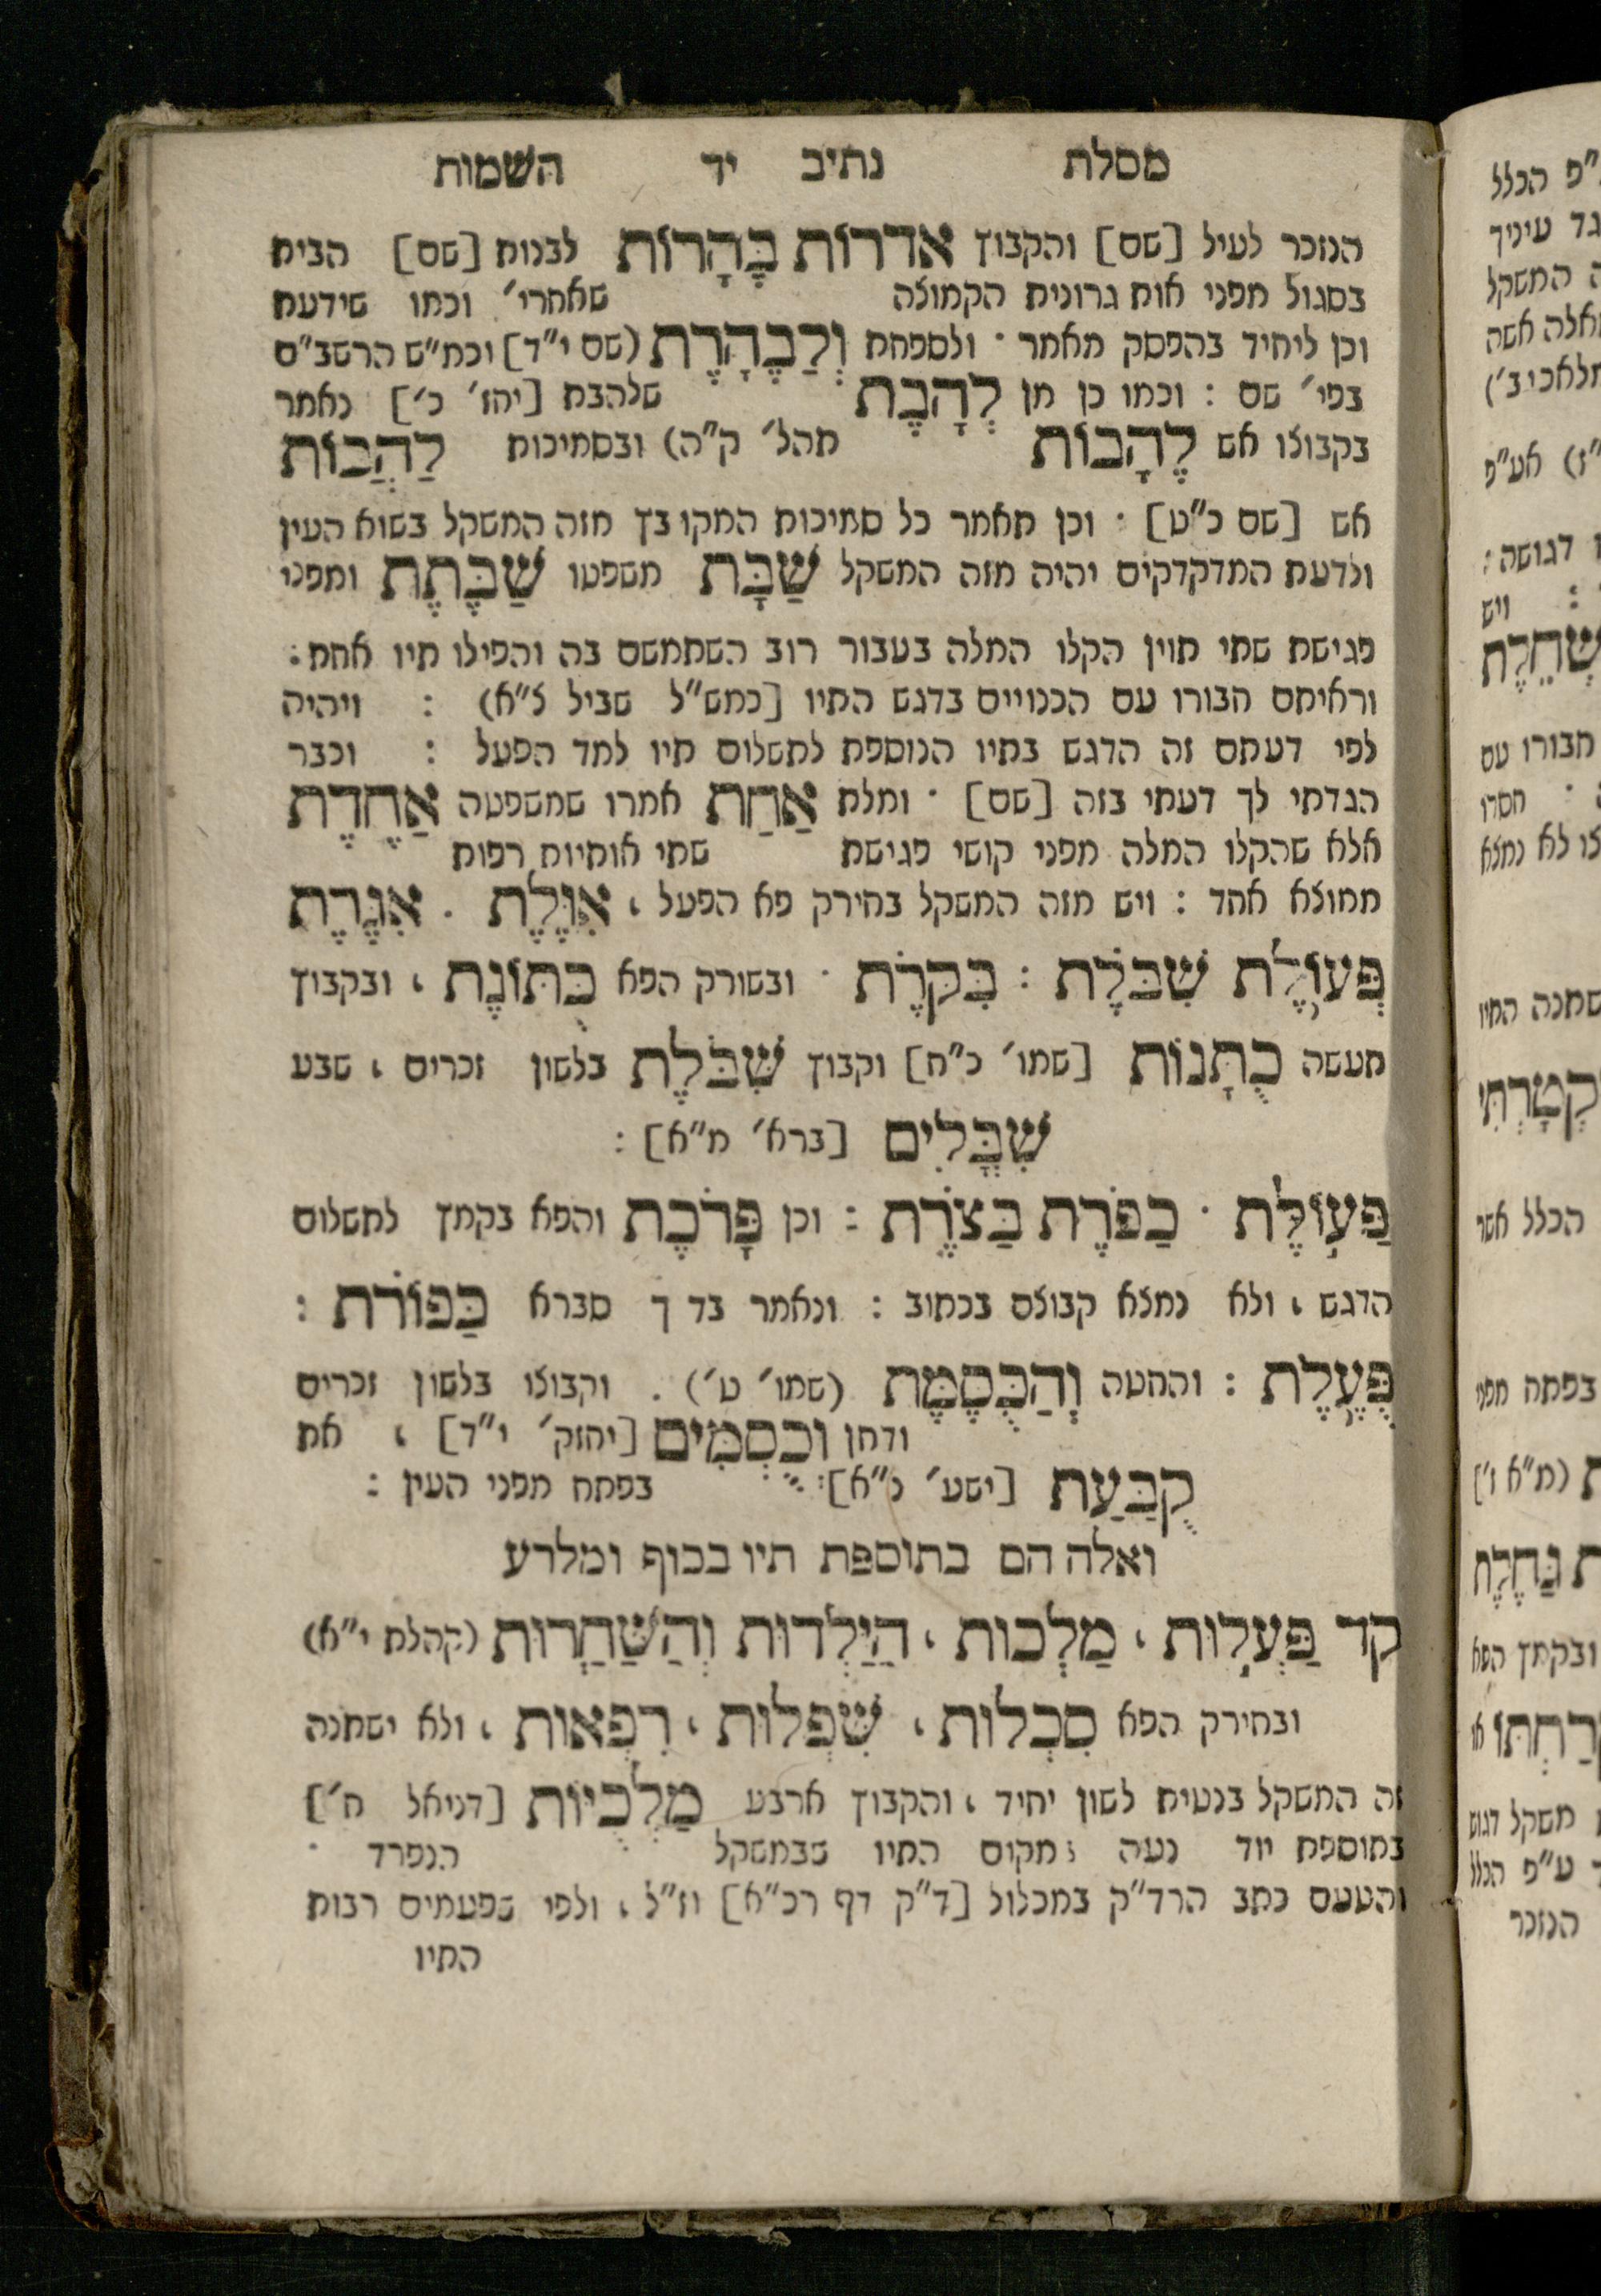 מסלת נתיב יד השמות
הנזכר לעיל [שם] והקבוץ אדרות בֶּהָרוֹת לבנות [שם] הבית
בסגול מפני אות גרונית הקמוצה שאחרי׳ וכמו שידעת
וכן ליחיד בהפסק תאמר · ולספחת וְלַבֶּהָרֶת (שם י״ד] וכמ״ש הרשב״ם
בפי׳ שם : וכמו כן מן לְהָבֶת שלהבת [יחז׳ כ׳] נאמר
בקבוצו אש לֶהָבוֹת תהל׳ ק״ה) ובסמיכות לַהֲבוֹת
אש [שם כ״ט] · וכן תאמר כל סמיכות המקובץ מזה המשקל בשוא העין
ולדעת המדקדקים יהיה מזה המשקל שַׁבָּת משפטו שַׁבֶּתֶת ומפני
פגישת שתי תוין הקלו המלה בעבור רוב השתמשם בה והפילו תיו אחת :
וראיתם חבורו עם הכנויים בדגש התיו [כמש״ל שביל ל״א) : ויהיה
לפי דעתם זה הדגש בתיו הנוספת לתשלום תיו למד הפעל : וכבר
הגדתי לך דעתי בזה [שם] · ומלת אַחַת אמרו שמשפטה אַחֶדֶת
אלא שהקלו המלה מפני קושי פגישת שתי אותיות רפות
ממוצא אחד : ויש מזה המשקל בחירק פא הפעל , אִוֶּלֶת . אִגֶּרֶת
פִּעוֹלֶת שִׁבֹּלֶת : בִּקֹּרֶת · ובשורק הפא כֻּתּוֹנֶת , ובקבוץ
מעשה כֻּתָּנוֹת [שמו׳ כ״ח] וקבוץ שִׁבֹּלֶת בלשון זכרים , שבע
שִׁבֳּלִים [ברא׳ מ״א] :
פַּעוֹלֶת · כַּפֹּרֶת בַּצֹּרֶת : וכן פָּרֹכֶת והפא בקמץ לתשלום
הדגש , ולא נמצא קבוצם בכתוב : ונאמר בד ך סברא כַּפּוֹרֹת :
פֻּעֶלֶת : והחטה וְהַכֻּסֶּמֶת (שמו׳ ט׳) . וקבוצו בלשון זכרים
ודחן וְכֻסְּמִים [יחזק׳ י״ד] , את
קֻבַּעַת [ישע׳ נ״א] : בפתח מפני העין :
ואלה הם בתוספת תיו בסוף ומלרע
קד פַּעְלוּת , מַלְכוּת , הַיַּלְדוּת וְהַשַּׁחֲרוּת (קהלת י״א)
ובחירק הפא סִכְלוּת , שִׁפְלוּת , רִפְאוּת , ולא ישתנה
זה המשקל בנטית לשון יחיד , והקבוץ ארבע מַלְכֻיוֹת [דניאל ח׳]
בתוספת יוד נעה במקום התיו שבמשקל הנפרד ·
והטעם כתב הרד״ק במכלול [ד״ק דף רכ״א] וז״ל , ולפי שפעמים רבות
התיו